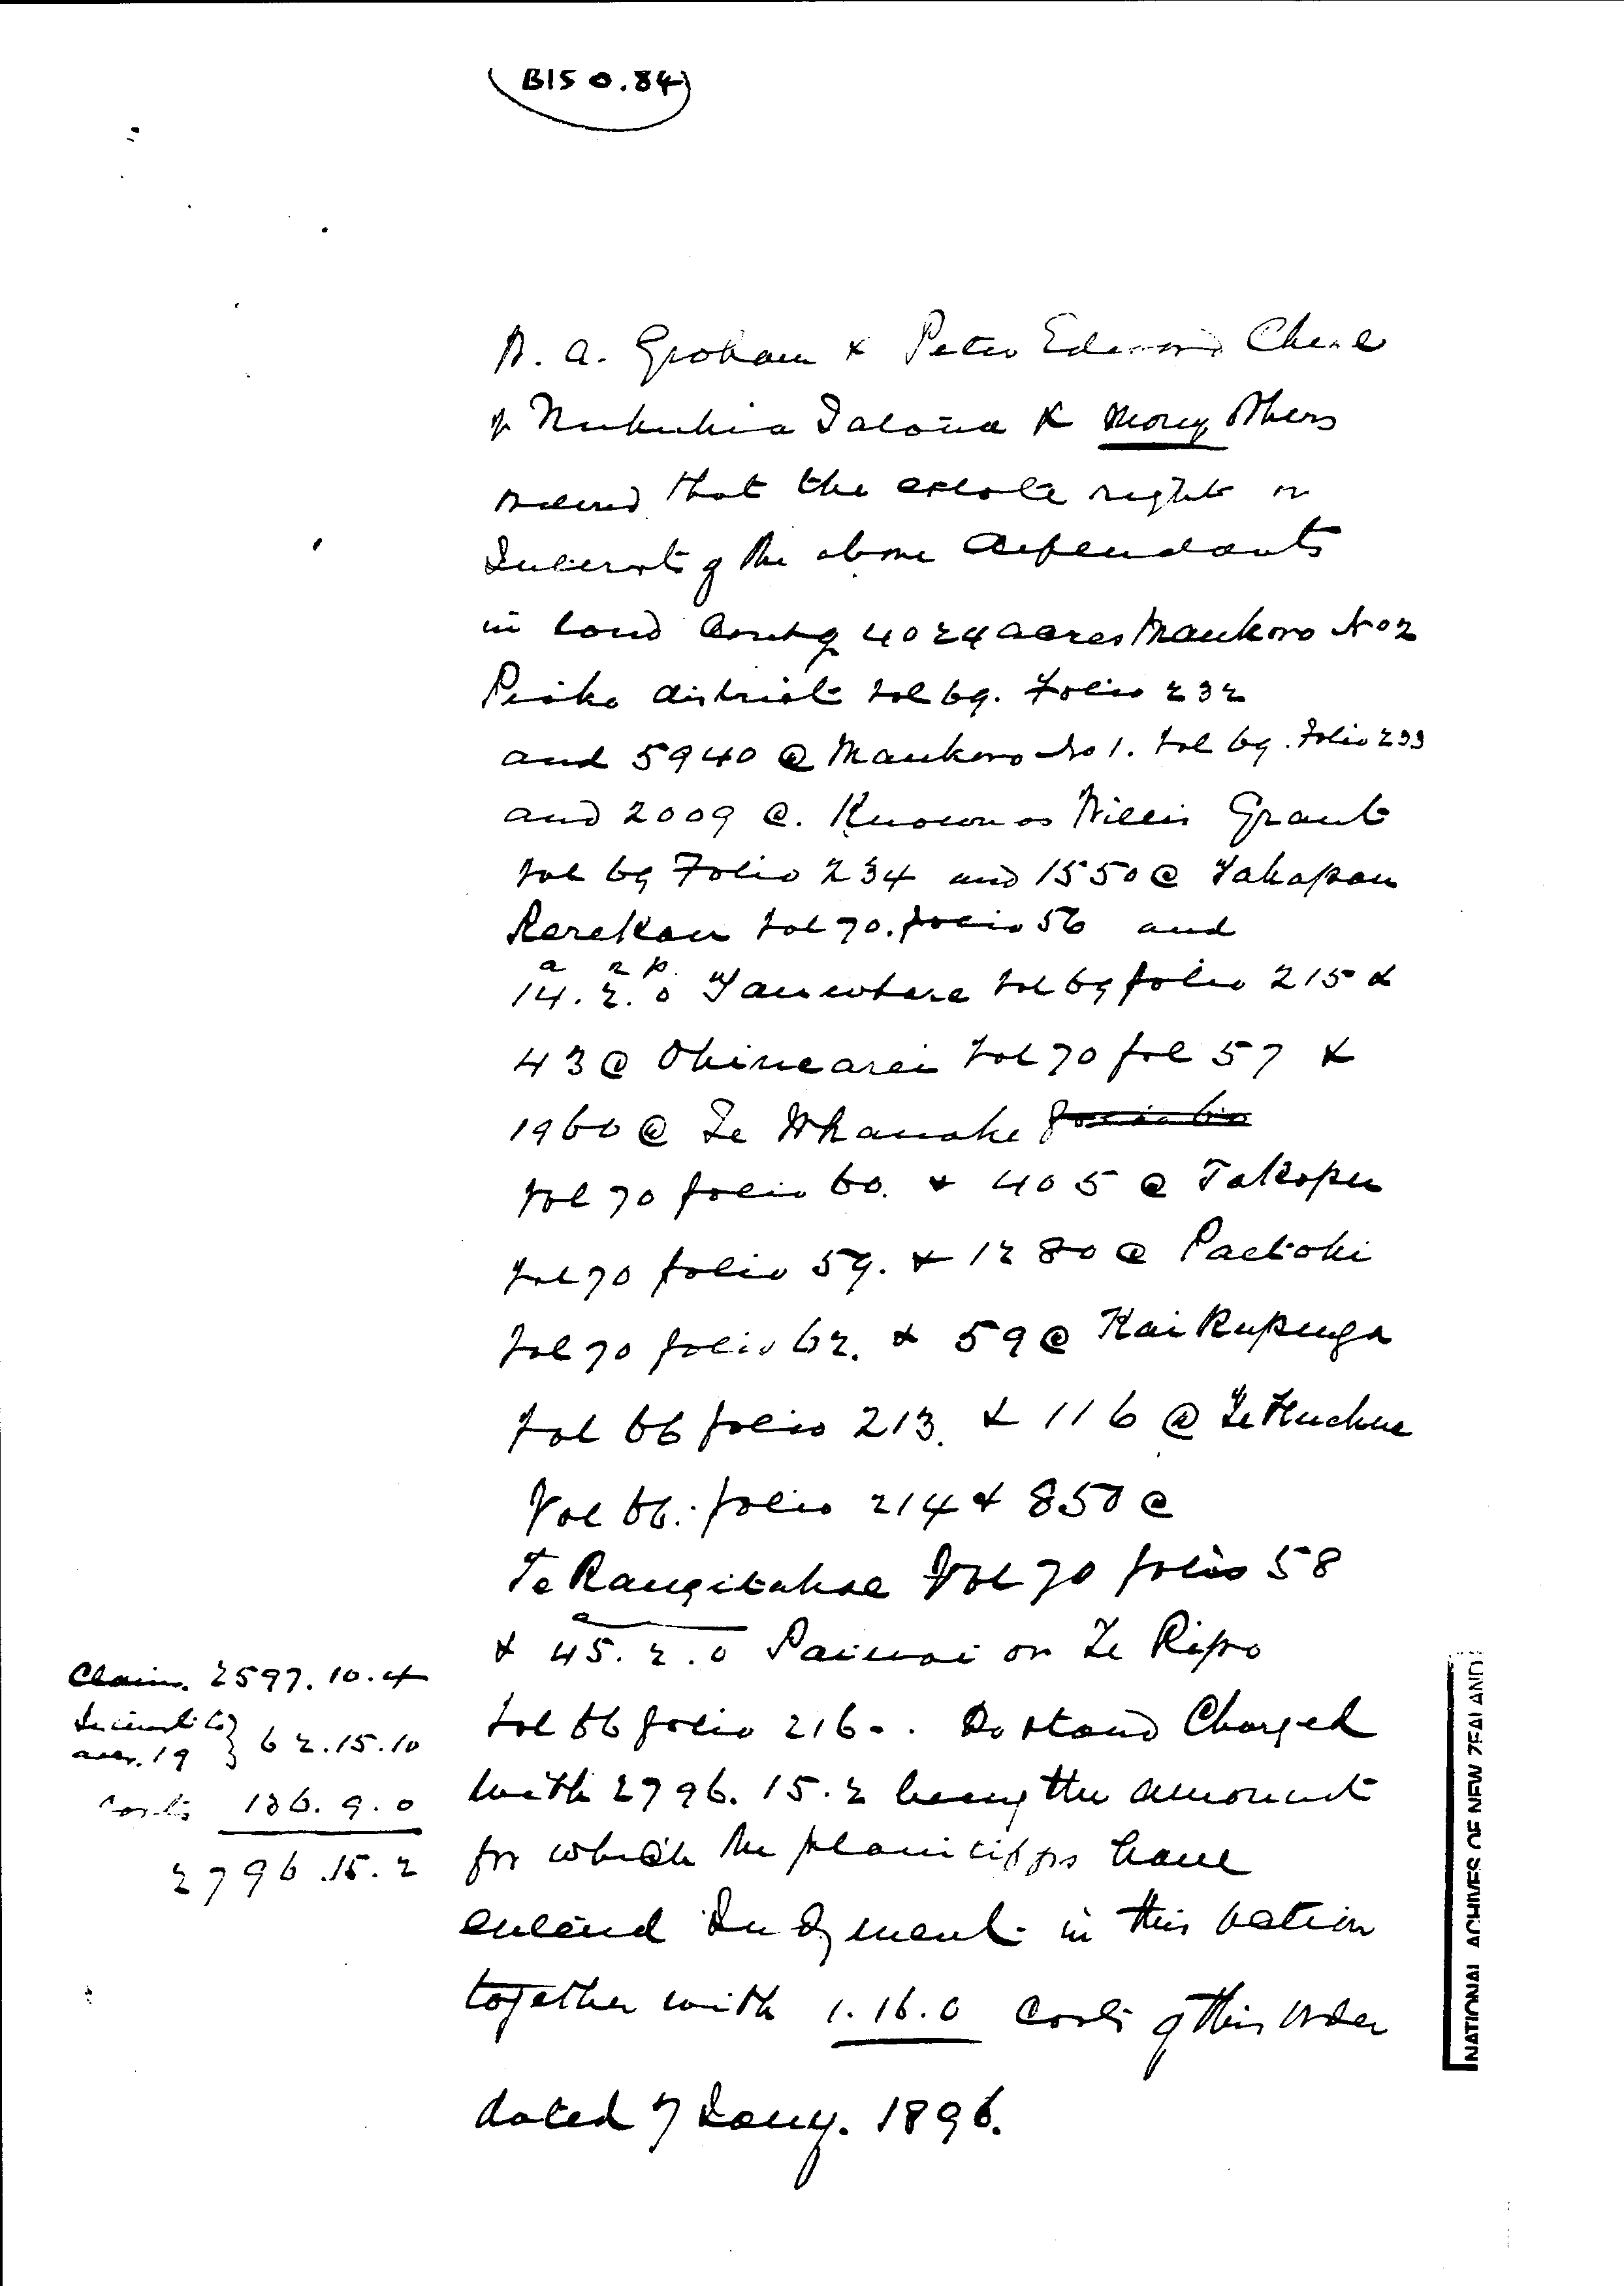 B15 0.84
W. A. Graham & Peter Edward Chea l
v Nukuhia Taloua & Many others
Ordered that the whole right or
Interest of the above defendants
in land Contg 4024 acres Maukoro No 2
Piako district Vol 69. Folio 232
and 5940 @ Maukoro No 1. Vol 69. Folio 233
and 2009 @. Known as Willis Grant
Vol 69 Folio 234 and 1550 @ Takapau
Rerekau Vol 70. folio 56 and
a r p.
14. 2. 0 Tauwhare Vol 69 folio 215 &
43 @ Ohinearei Vol 70 fol 57 &
1960 @ Te Whanake folio 60
Vol 70 folio 60. & 405 @ Takapu
Vol 70 folio 59. & 1280 @ Paetoki
Vol 70 folio 62. & 59 @ Kai Rupenga
Vol 66 folio 213. & 116 @ Te Huehue
Vol 66. folio 214 & 850 @
Te Rangitahae Vol 70 folio 58
a
& 45. 2. 0 Paiwai or Te Ripo
Vol 66 folio 216. Do stand Charged
with 2796. 15. 2 being the amount
for which the plaintiffs have
entered Judgment in this action
together with 1. 16. 0 Costs of this order
dated 7 Jany. 1896.
Claim. 2597. 10. 4
Interest to }
19 } 62. 15. 10
Costs 136. 9. 0
2796. 15. 2
NATIONAL ACHIVES OF NEW ZEALAND